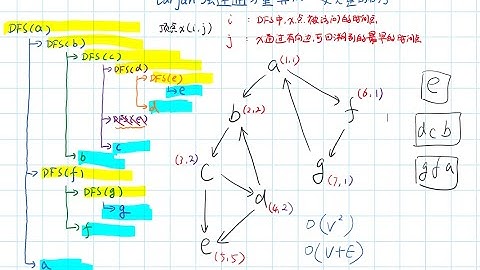 顶点x(i,j)
i : DFS中,x点被访问的时间点
j : x通过有向边,可回溯到的最早的时间点
DFS(a)
DFS(b)
DFS(c)
DFS(d)
DFS(e)
e
d
DFS(e)
c
b
DFS(f)
DFS(g)
g
f
a
a(1,1)
b(2,2)
f(6,1)
c(3,2)
g(7,1)
d(4,2)
e(5,5)
e
dcb
gfa
O(V²)
O(V+E)